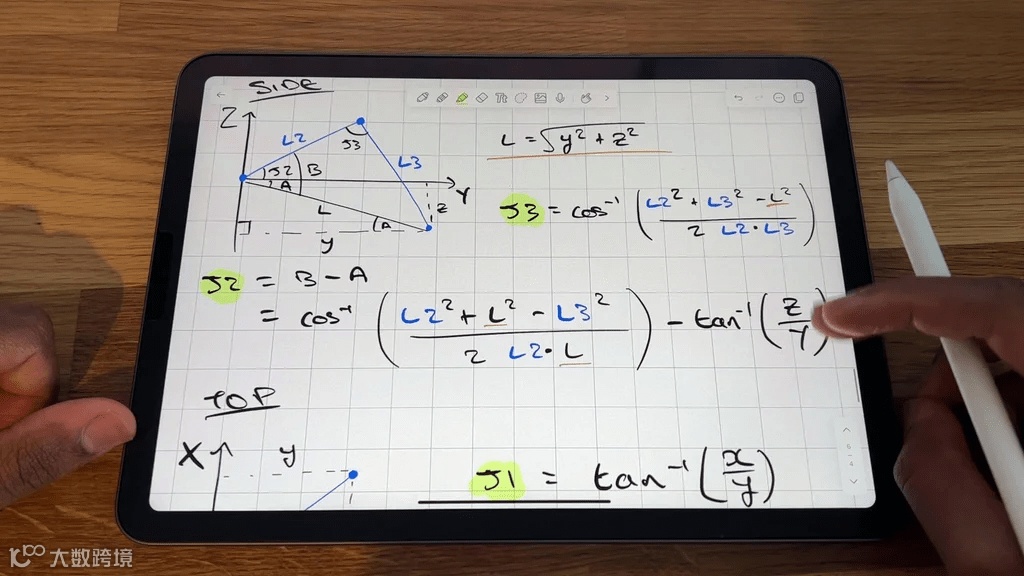 SIDE
Z
L2
J3
L3
J2
B
A
Y
L
z
A
y
L = √y² + z²
J3 = cos⁻¹ (L2² + L3² - L² / 2 L2 · L3)
J2 = B - A
= cos⁻¹ (L2² + L² - L3² / 2 L2 · L) - tan⁻¹ (z / y)
TOP
X
y
J1 = tan⁻¹ (x / y)
大数跨境